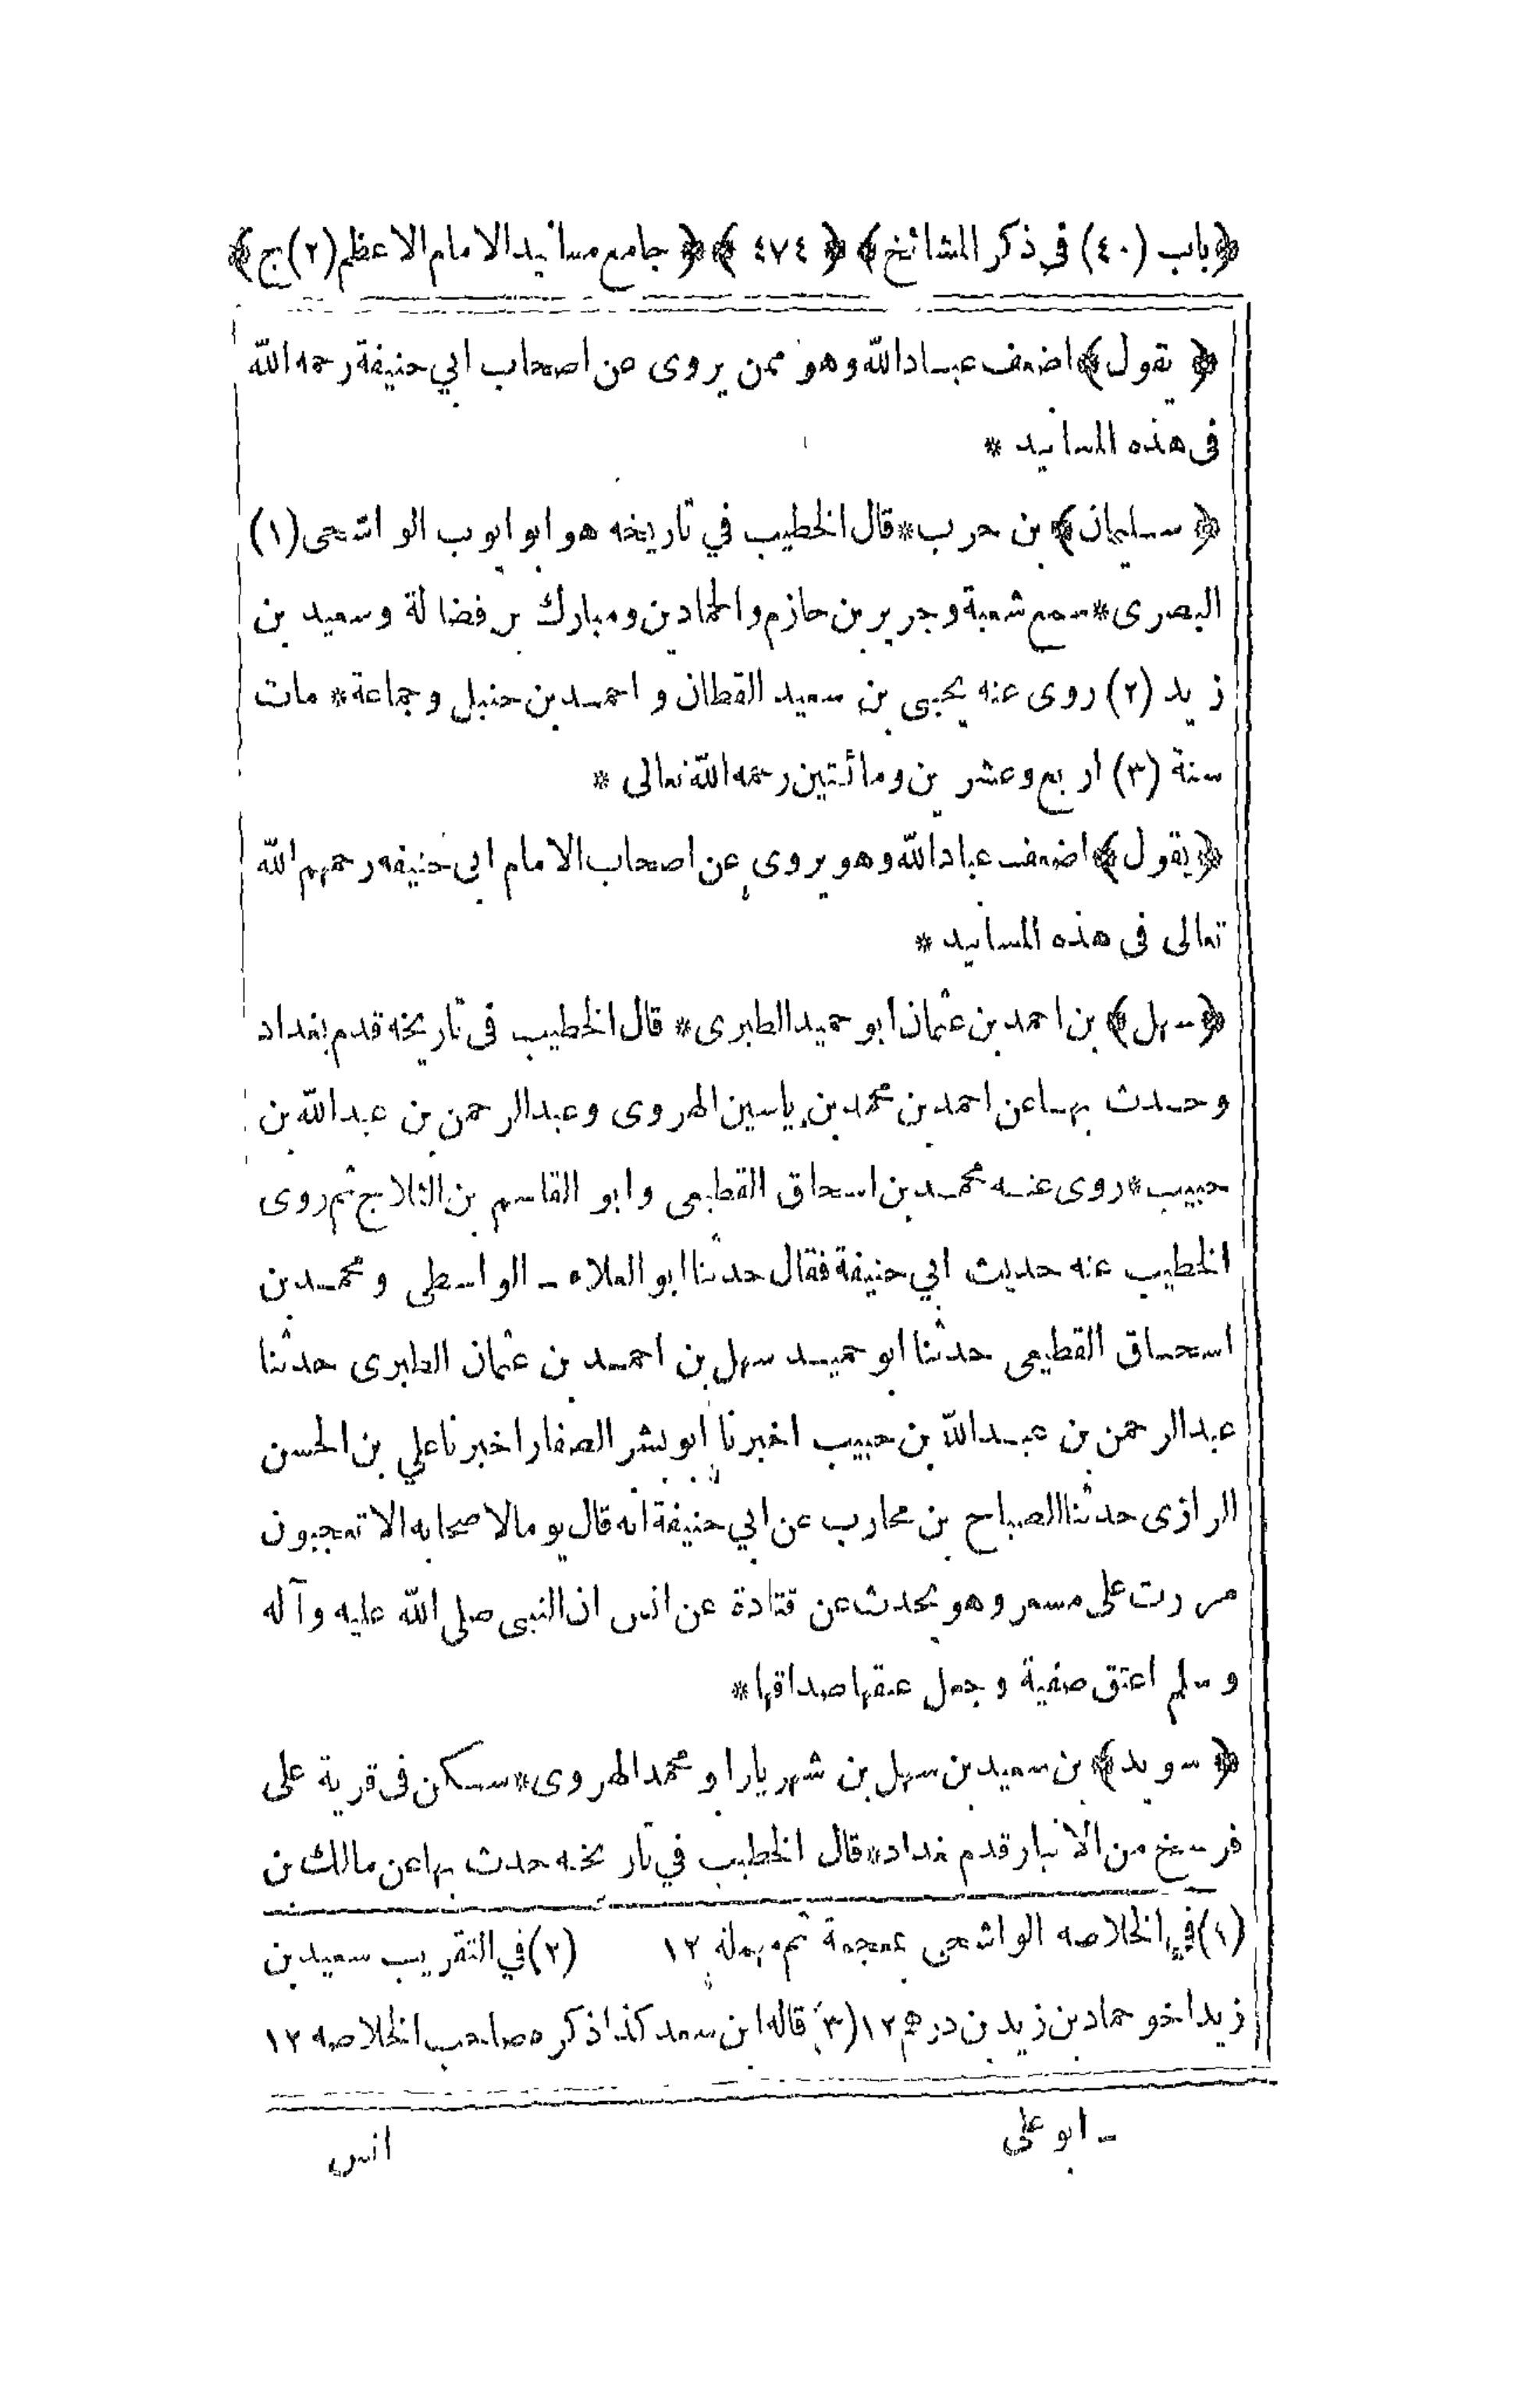 ﴿باب (٤٠) فى ذكر المشائخ﴾ ﴿ ٤٧٤ ﴾ ﴿ جامع مسانيد الامام الاعظم (٢) ج﴾
﴿ يقول ﴾ اضعف عباد الله وهو ممن يروى عن اصحاب ابي حنيفة رحمه الله
فى هذه المسانيد *
﴿ سليمان ﴾ بن حرب * قال الخطيب في تاريخه هو ابو ايوب الواشحى (١)
البصرى * سمع شعبة وجرير بن حازم والحمادين ومبارك بن فضالة وسعيد بن
زيد (٢) روى عنه يحيى بن سعيد القطان و احمد بن حنبل وجماعة * مات
سنة (٣) اربع وعشرين ومائتين رحمه الله تعالى *
﴿ يقول ﴾ اضعف عباد الله وهو يروى عن اصحاب الامام ابى حنيفه رحمهم الله
تعالى فى هذه المسانيد *
﴿ سهل ﴾ بن احمد بن عثمان ابو حميد الطبرى * قال الخطيب فى تاريخه قدم بغداد
وحدث بها عن احمد بن محمد بن ياسين الهروى وعبد الرحمن بن عبد الله بن
حبيب * روى عنه محمد بن اسحاق القطيعى وابو القاسم بن الثلاج ثم روى
الخطيب عنه حديث ابي حنيفة فقال حدثنا ابو العلاء ـ الواسطى ومحمد بن
اسحاق القطيعى حدثنا ابو حميد سهل بن احمد بن عثمان الطبرى حدثنا
عبد الرحمن بن عبد الله بن حبيب اخبرنا ابو بشر الصفار اخبرنا علي بن الحسن
الرازى حدثنا الصباح بن محارب عن ابي حنيفة انه قال يوما لاصحابه الا تعجبون
مررت على مسعر وهو يحدث عن قتادة عن انس ان النبى صلى الله عليه وآله
وسلم اعتق صفية وجعل عتقها صداقها *
﴿ سويد ﴾ بن سعيد بن سهل بن شهريار ابو محمد الهروى * سكن فى قرية على
فرسخ من الانبار قدم بغداد * قال الخطيب في تاريخه حدث بها عن مالك بن
(١) في الخلاصه الواشحى بمعجمة ثم مهملة ١٢ (٢) في التقريب سعيد بن
زيد اخو حماد بن زيد بن درهم ١٢ (٣) قاله ابن سعد كذا ذكره صاحب الخلاصه ١٢
ـ ابو على
انس